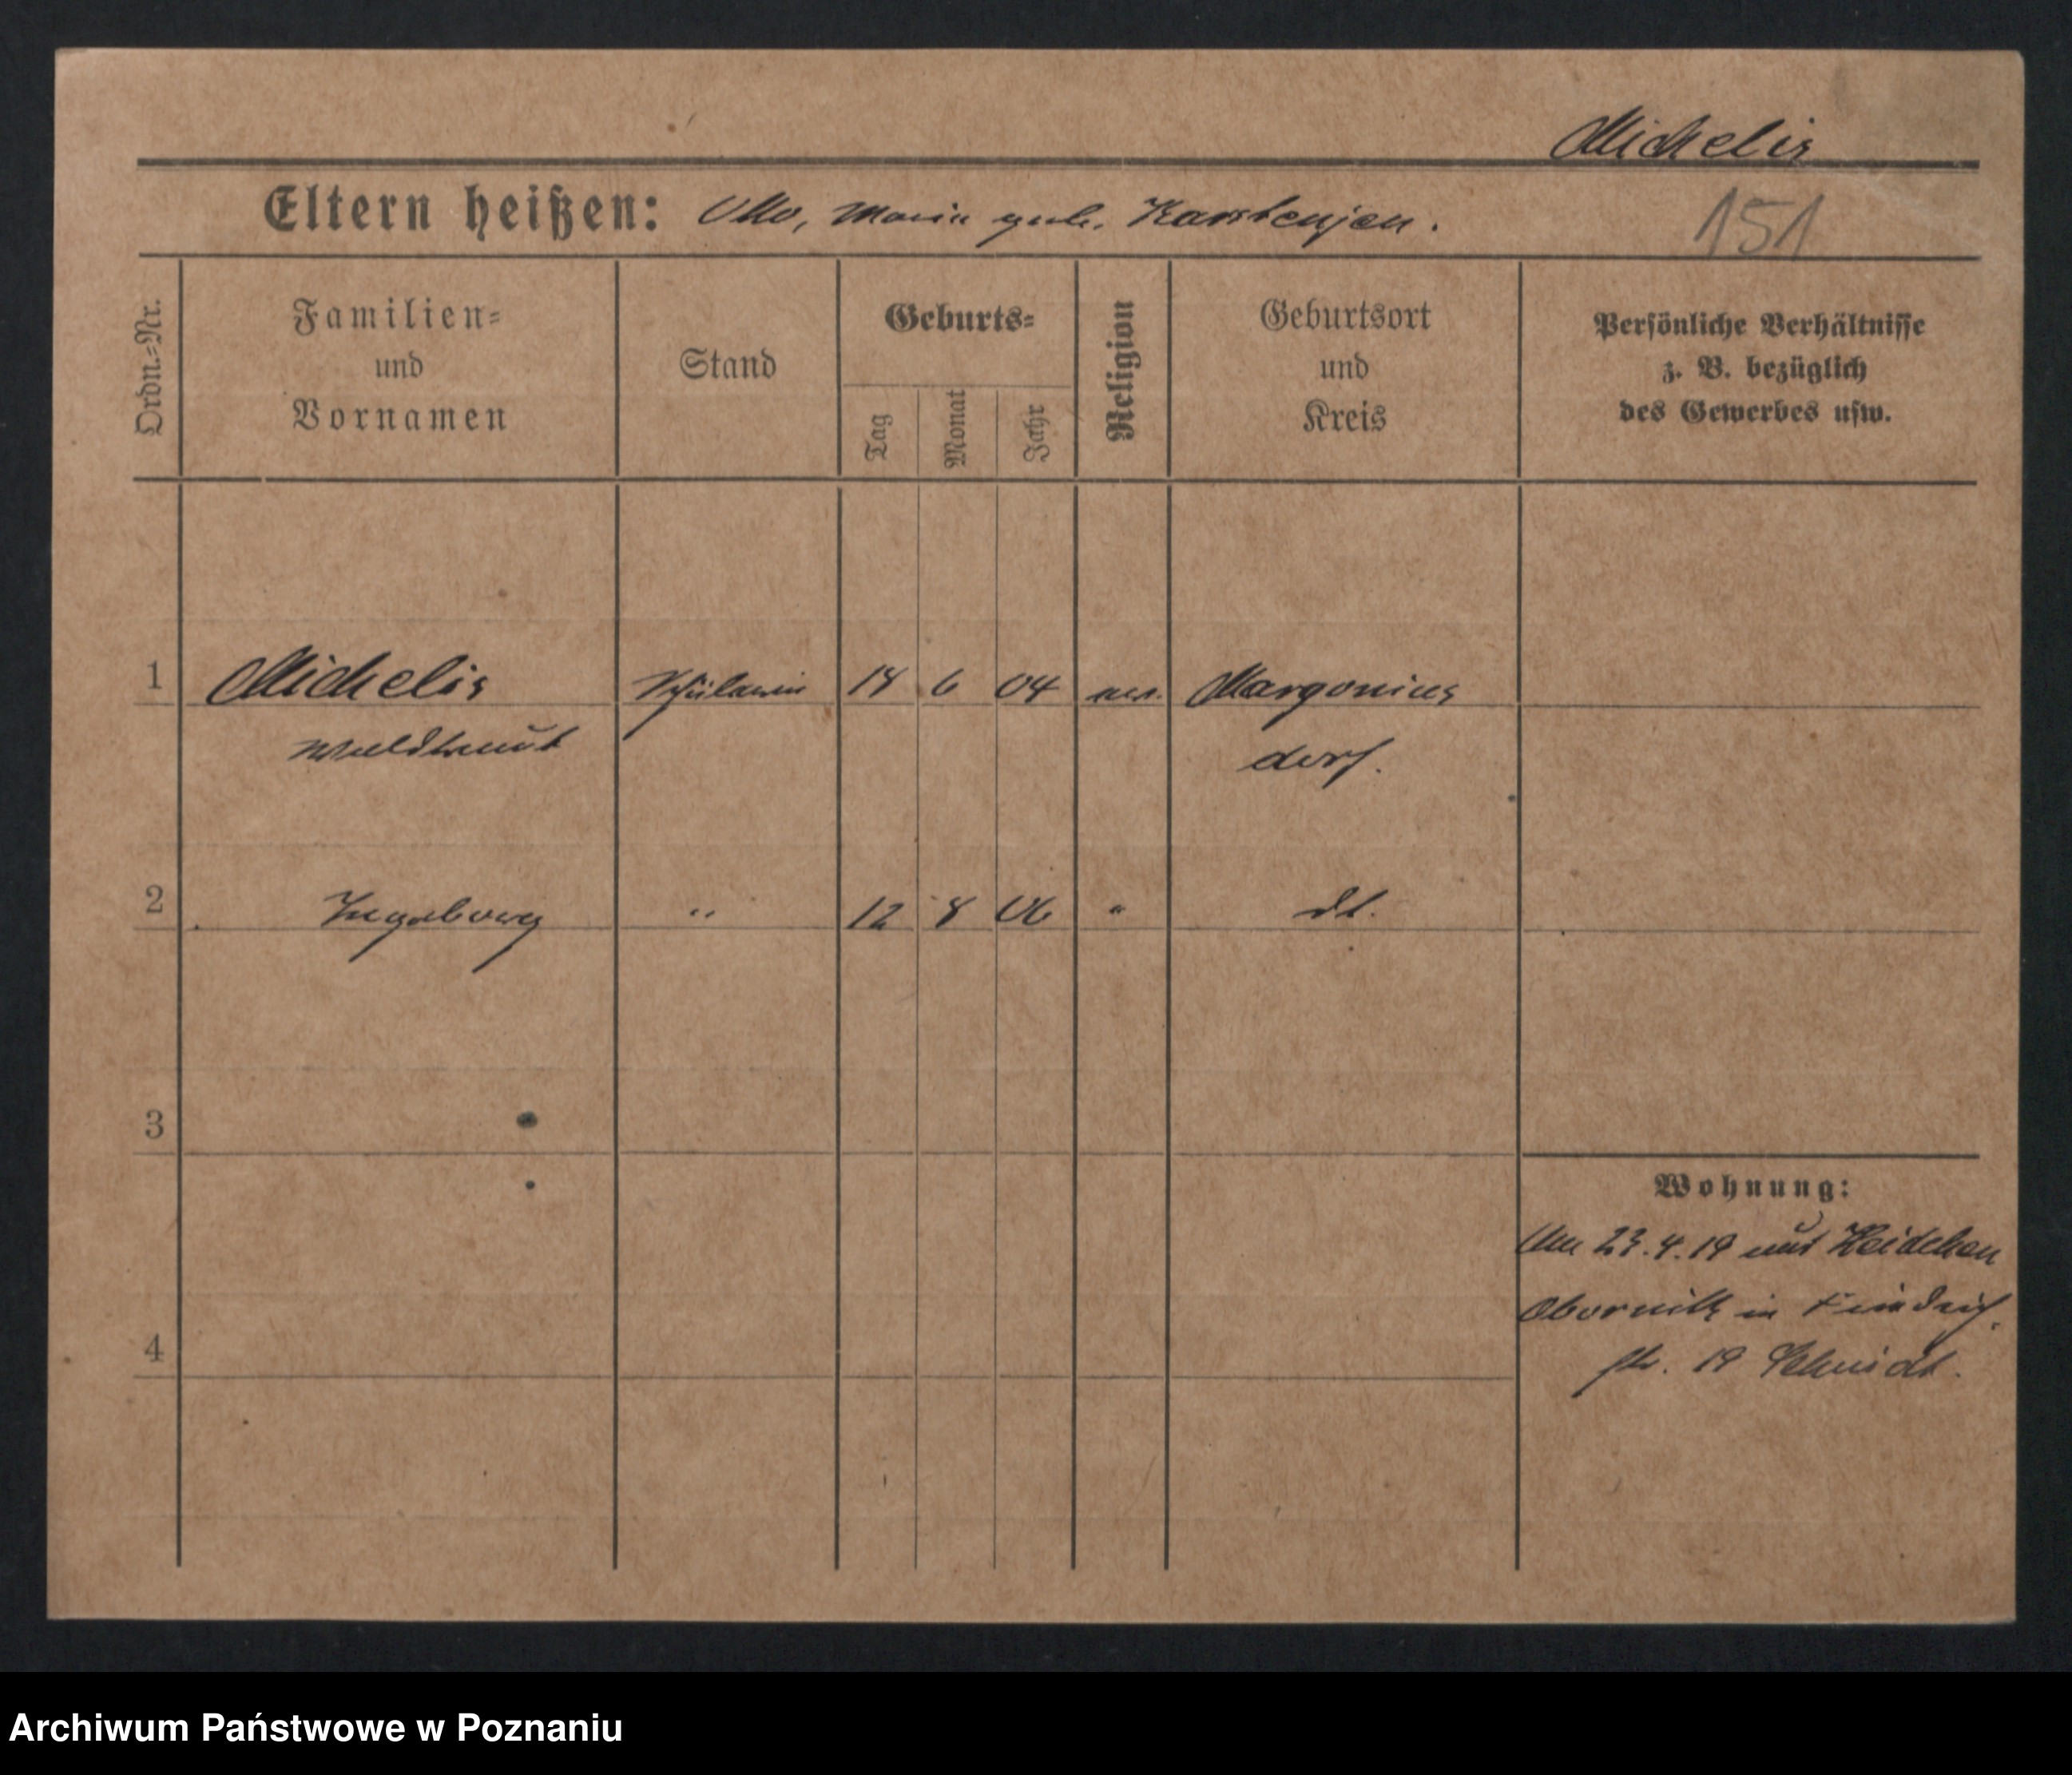 Michelis
Eltern heißen: Otto, Marie geb. Karstenjen.
151
Ordn.-Nr.
Familien-
und
Vornamen
Stand
Geburts-
Tag
Monat
Jahr
Religion
Geburtsort
und
Kreis
Persönliche Verhältnisse
z. B. bezüglich
des Gewerbes usw.
1 Michelis Schülerin 18 6 04 Margonins
Waldtraut dorf.
2 Ingeborg " 12 8 06 " dt.
3
4
Wohnung:
Am 23.4.19 aus
Obornik in Friedrich
str. 19 Schmidt.
Archiwum Państwowe w Poznaniu